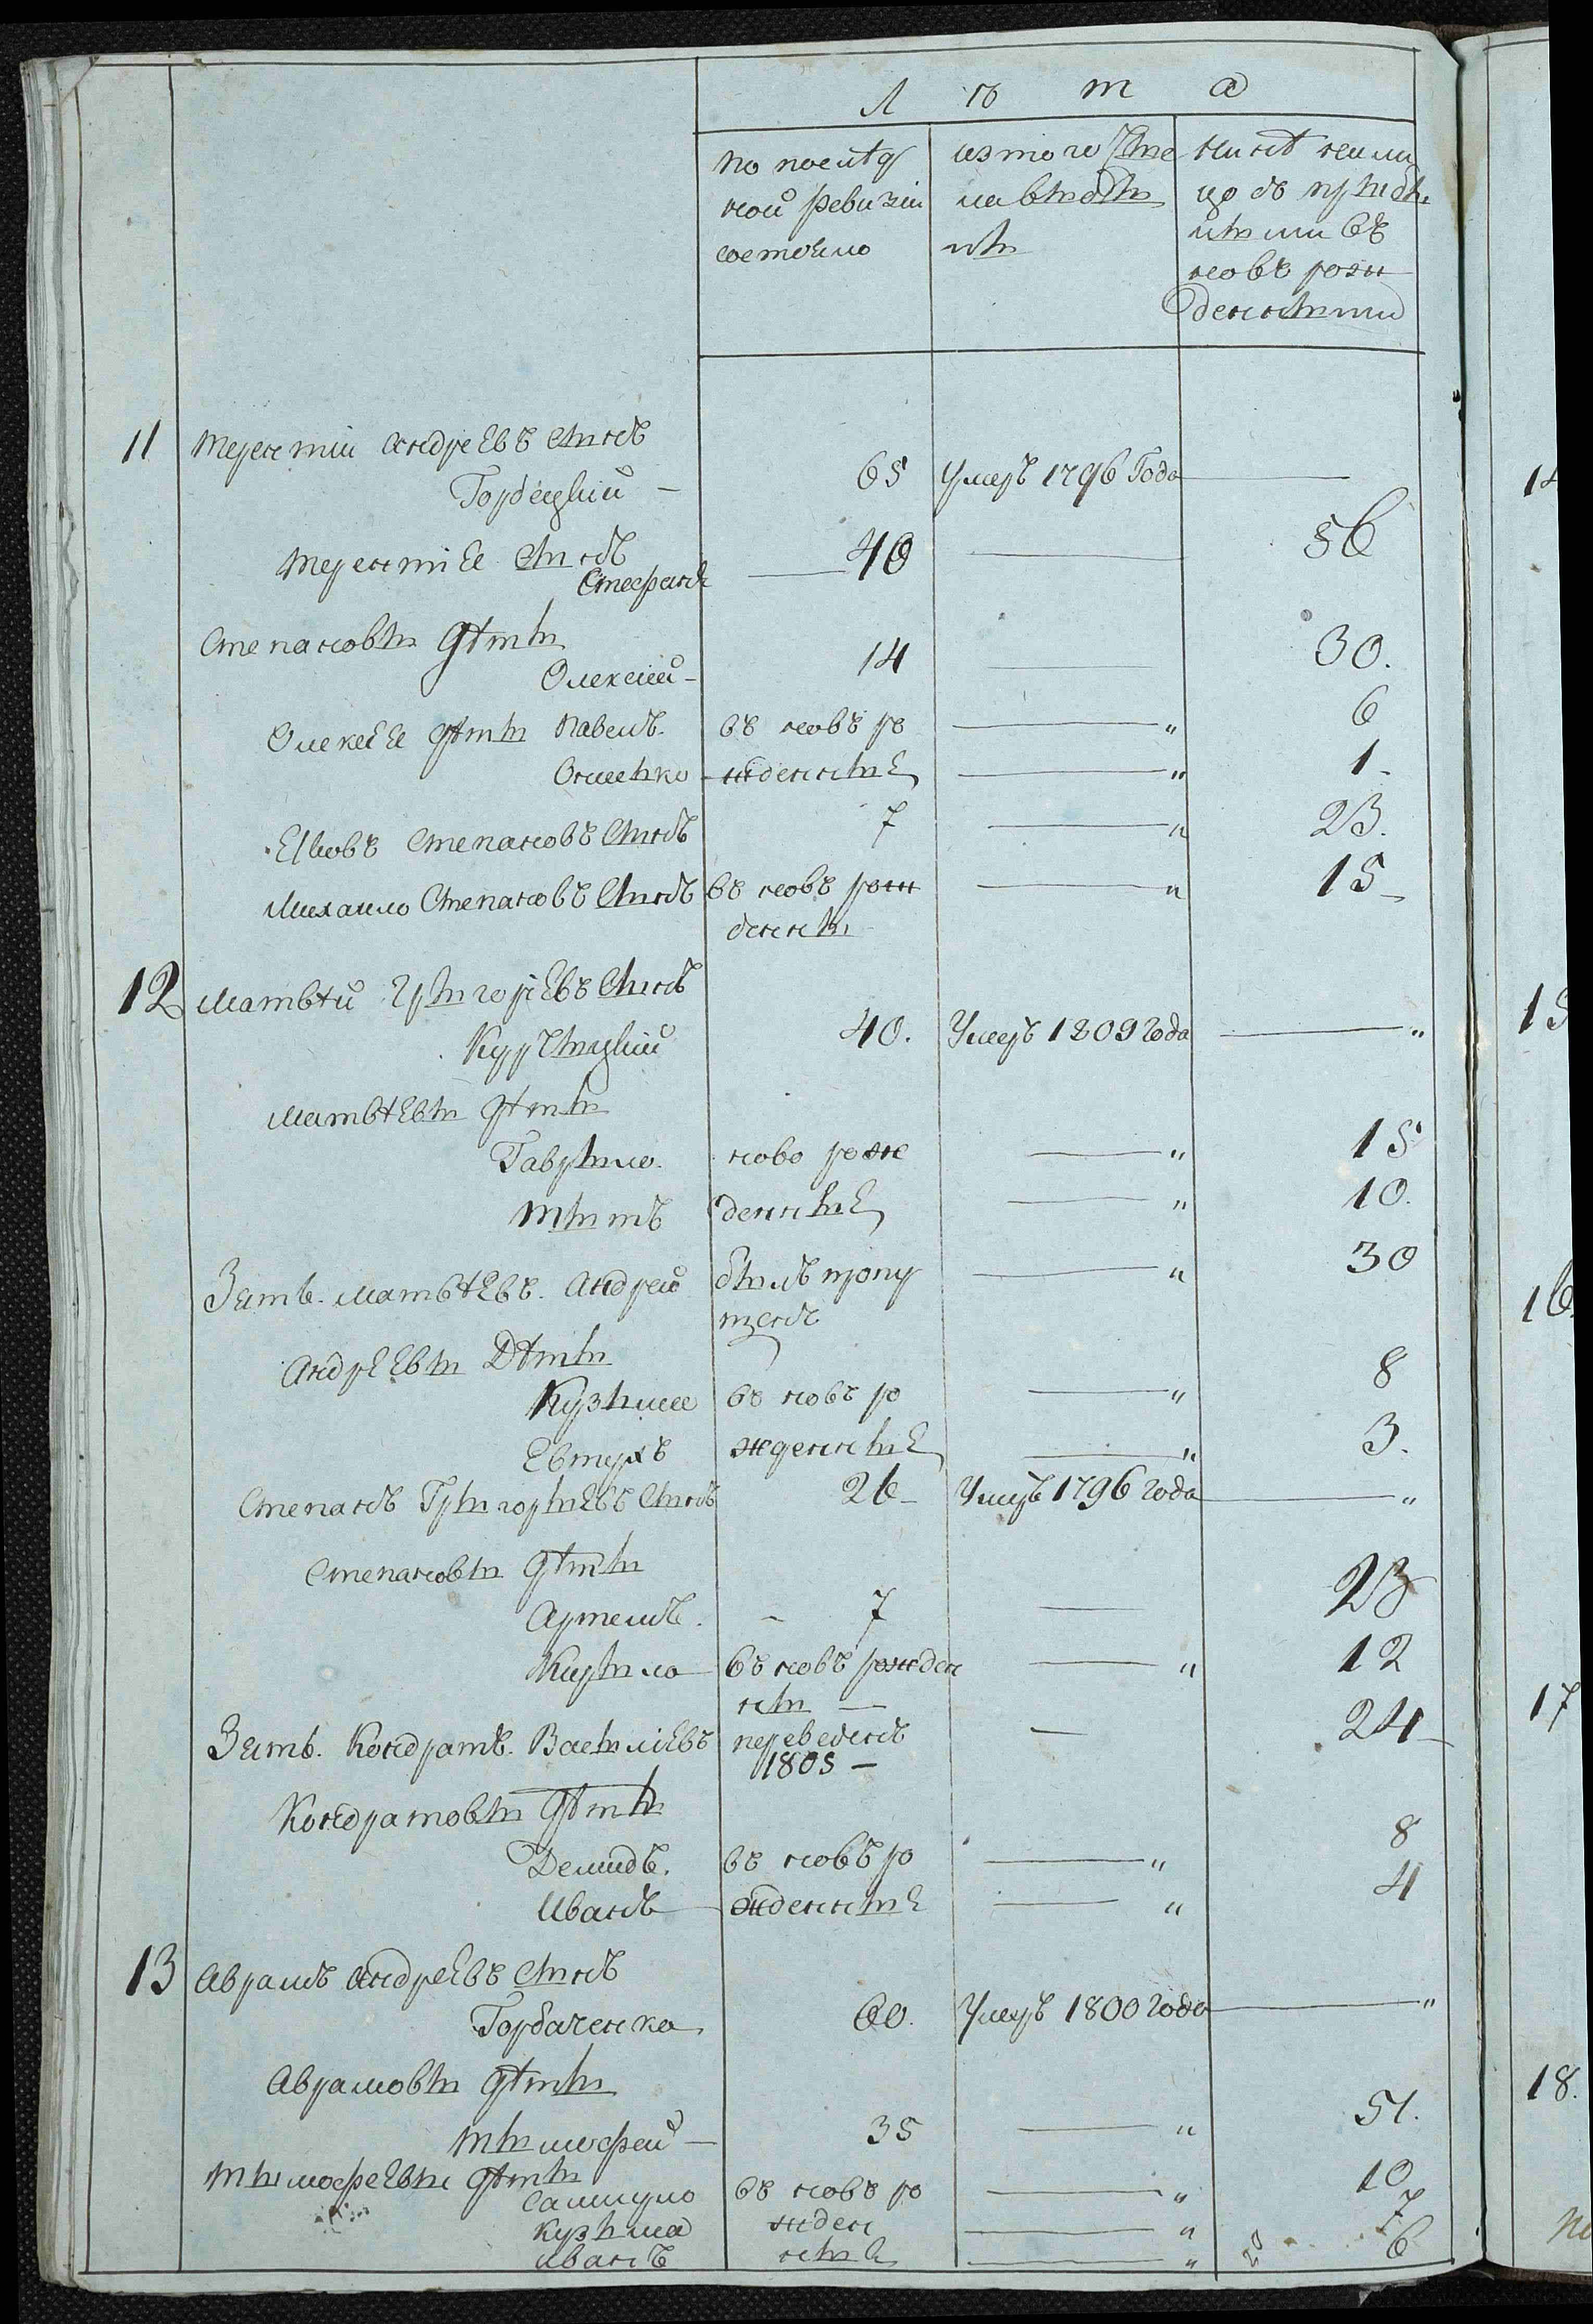 Лѣта
по послѣд
ной ревизіи
состояло
изтого Чис
ла выбы
лы
нинѣ нали
цо съ прыбы
лыми въ
новъ рож
деннымы
11 Терентій андреевъ Сынъ
Горбацкій — 65 Умеръ 1796 Года —
Терентіев Сынъ
Стефанъ — 40 — 56
Степановы дѣты
Олексій — 14 — 30.
Олексѣев дѣты Павелъ. въ новъ ро — „ 6
Омелько жденные — „ 1
Яковъ Степановъ Сынъ 7 — „ 23.
Михаило Степановъ Сынъ въ новъ рож — „ 15
денны
12 Матвѣй Грыгоріевъ Сынъ
Курчыцкій 40. Умеръ 1809 года — „
Матвѣевы дѣты
Гаврыло. ново рож — „ 15
Тытъ денные — „ 10.
Зять. Матвѣевъ. Андрей былъ пропу — „ 30
щенъ
Андреевы Дѣты
Кузьма въ новъ ро — „ 8
Евтухъ жденные — „ 3.
Степанъ Грыгорыевъ Сынъ 26 Умеръ 1796 года — „
Степановы дѣты
Артемъ. — 7 — 23
Кирыло въ новъ рожден — „ 12
ны —
Зять. Кондратъ. Васыліевъ переведенъ — 24
1805 —
Кондратовы дѣты
Демидъ. въ новъ ро — „ 8
Иванъ жденные — „ 4
13 Аврамъ андреевъ Сынъ
Горбаченко 60. Умеръ 1800 года — „
Аврамовы дѣты
Тымофей — 35 — „ 51.
Тымофеевы дѣты
Самуило въ новъ ро — „ 10
кузьма жден — „ 7
иванъ ные — „ 6
20
14
15
16
17
18.